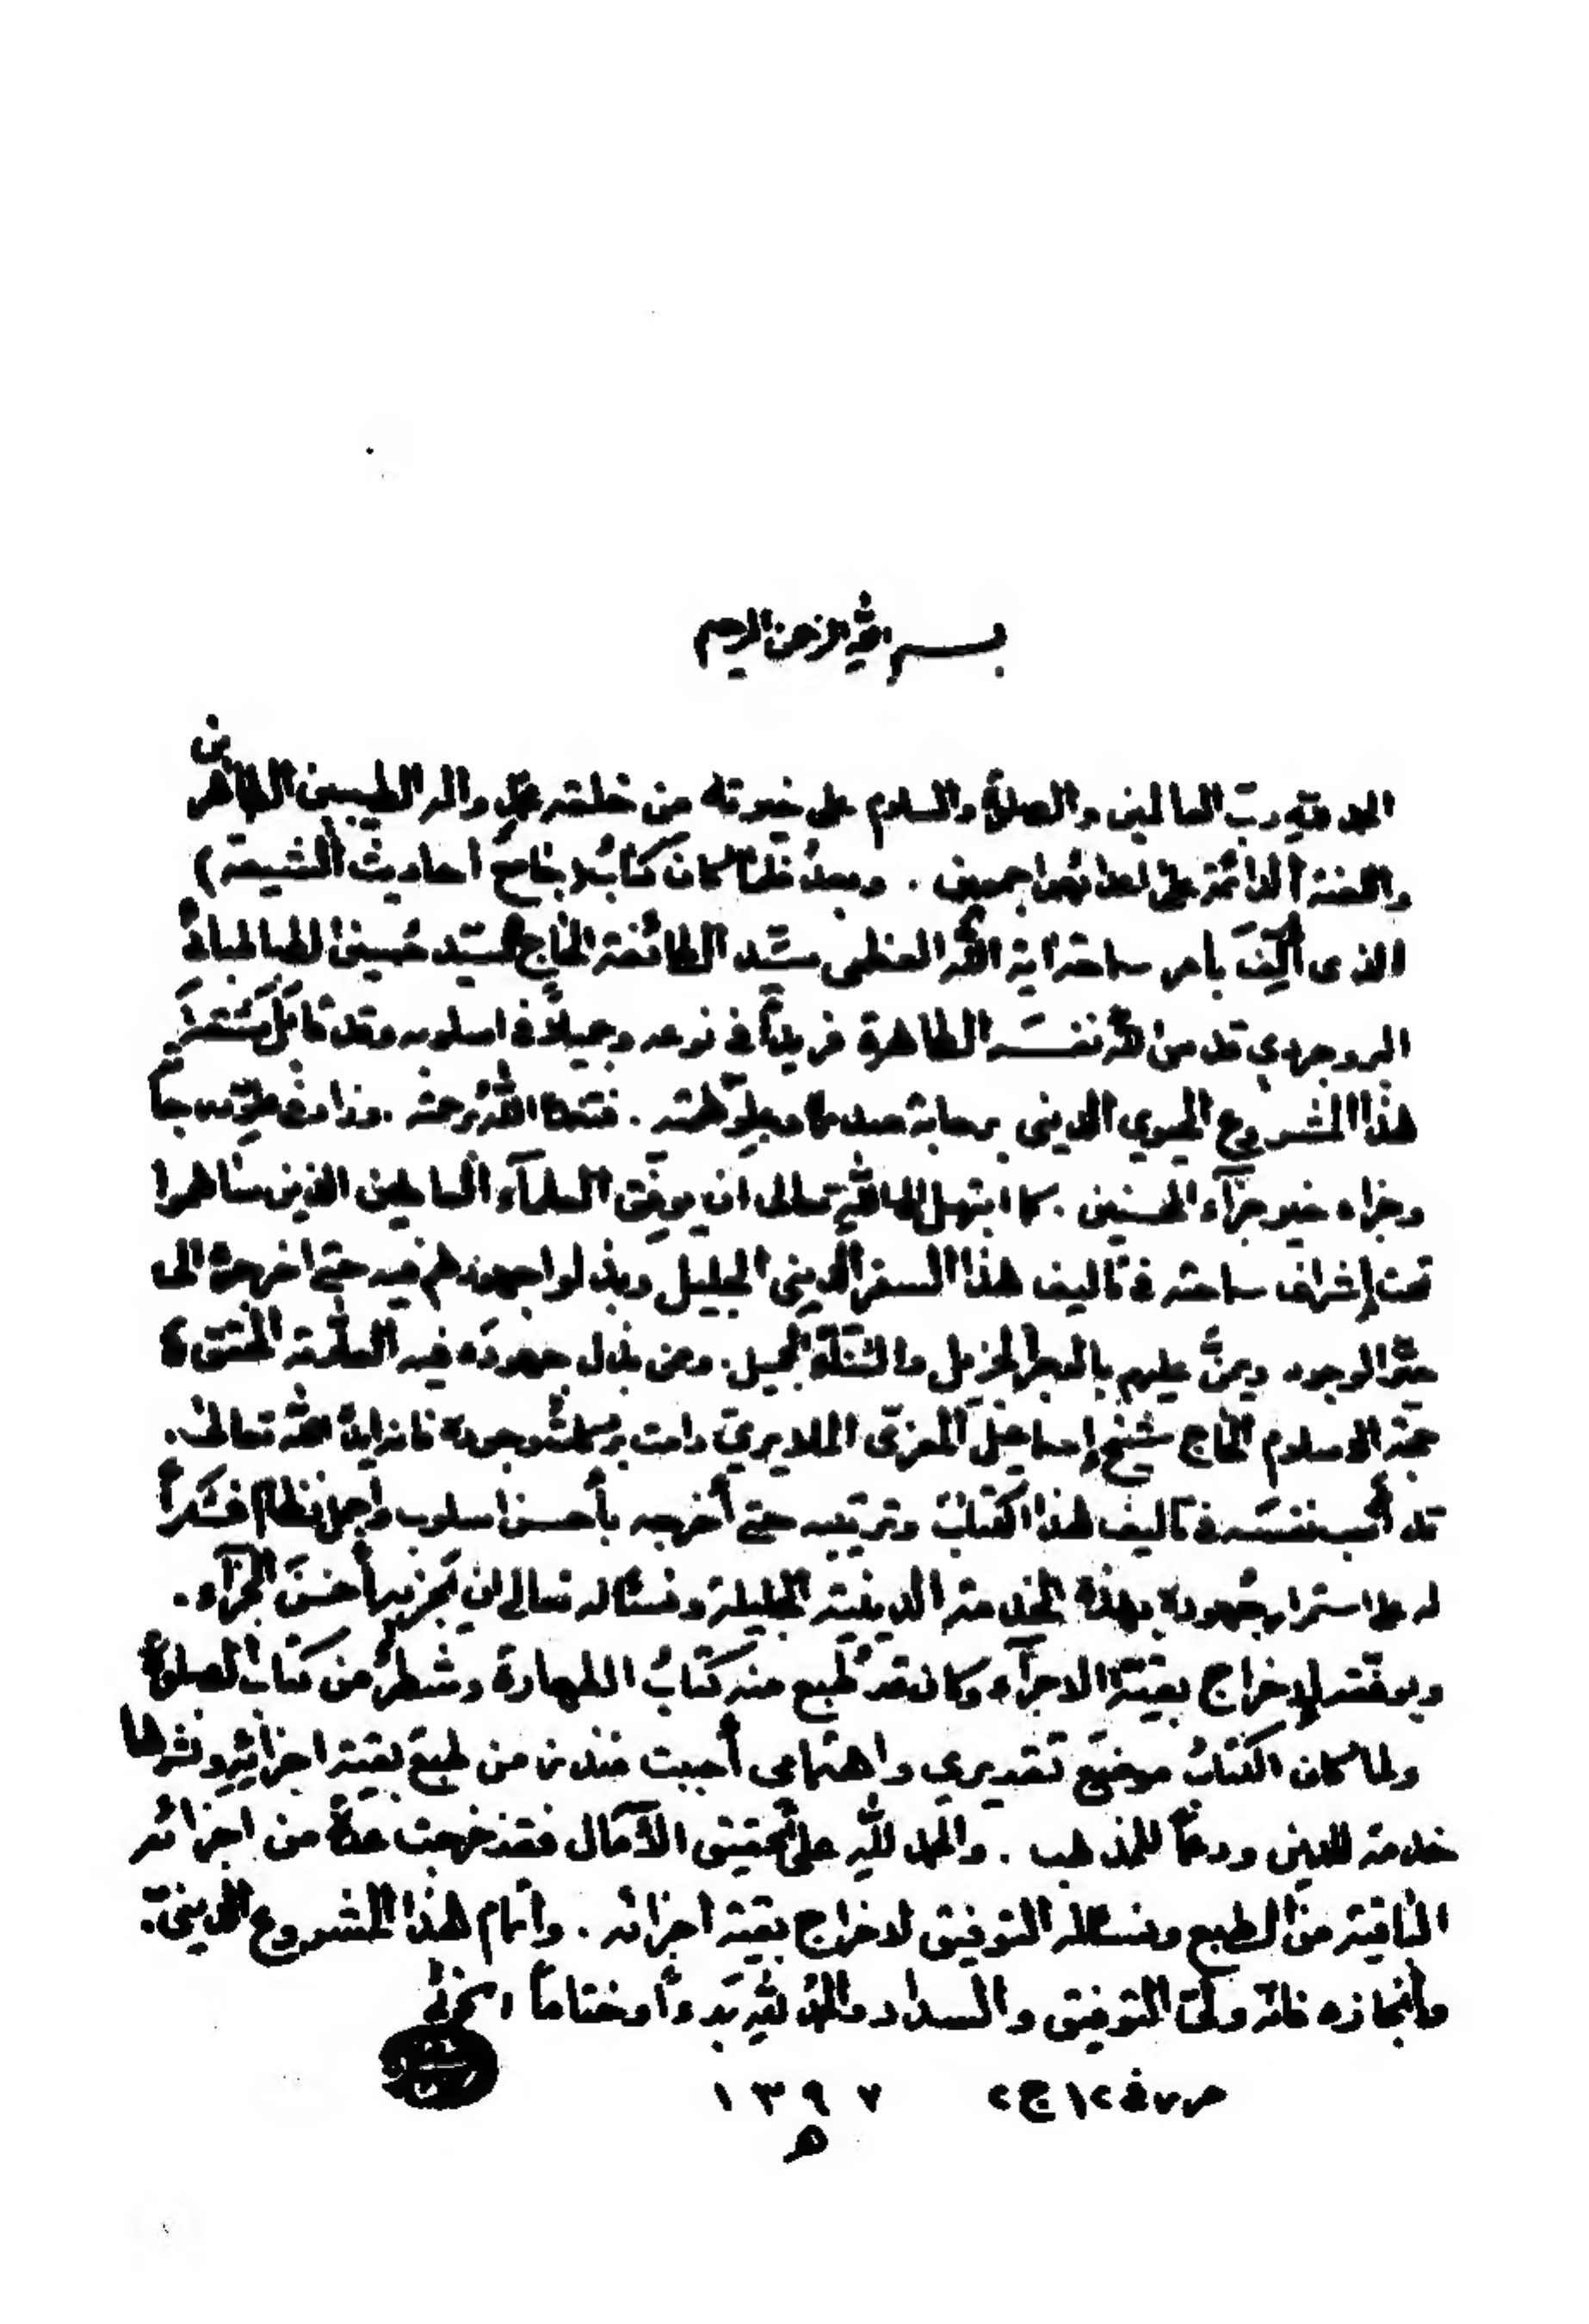 بسم الله الرحمن الرحيم
الحمد لله رب العالمين والصلاة والسلام على خيرته من خلقه محمد وآله الطيبين الطاهرين
واللعنة الدائمة على اعدائهم اجمعين . وبعدُ فلما كان كتابُ (جامع احاديث الشيعة)
الذى أُلِّفَ بأمر سماحة آية الله العظمى سيّد الطائفة الحاج السيّد حُسين الطباطبائي
البروجردي قدس الله نفسَه الطاهرة فريداً في نوعه وجميلاً في اسلوبه وقد قابَلَ سماحتُه
هذا المشروع الحيوي الديني برحابة صدره وعلوّ همّته . فتغمّده الله برحمته . وزاد في علوّ درجاته
وجزاه خير جزآء المحسنين . كما ابتهل الى الله تعالى ان يوفق العلمآء العاملين الذين ساهموا
تحت إشراف سماحته في تأليف هذا السفر الديني الجليل وبذلوا جهودهم فيه حتى اخرجوه الى
حيّز الوجود ويمنَّ عليهم بالأجر الجزيل والثناء الجميل . وممن بذل جهودَه فيه العلّامة المتتبّع
حجّة الاسلام الحاج شيخ إسماعيل المعزّى الملايري دامت بركات وجوده فانه ايده الله تعالى .
قد أتعب نفسَه في تأليف هذا الكتاب وترتيبه حتى أخرجه بأحسن اسلوب وأجمل نظام فشكراً
له على استمرار جُهوده بهذه الخدمة الدينية الجليلة ونسأله تعالى ان يَجزيه أحسنَ الجزآء .
ويوفّقه لإخراج بقيّة الاجزآء وكان قد طُبع منه كتابُ الطهارة وشطرٌ من كتاب الصلاة
ولما كان الكتابُ موضعَ تقديري واهتمامي أحببت منذ زمن طبعَ بقية اجزائه ونشرها
خدمة للدين ودعماً للمذهب . والحمد لله على تحقيق الآمال فقد خرجت عدّة من اجزائه
الباقية من الطبع ونسأله التوفيق لاخراج بقية اجزائه . واتمام هذا المشروع الديني .
وانجازه فانه ولي التوفيق والسداد والحمد لله بدءاً وختاماً الخوئي
١٣٩٧
ه